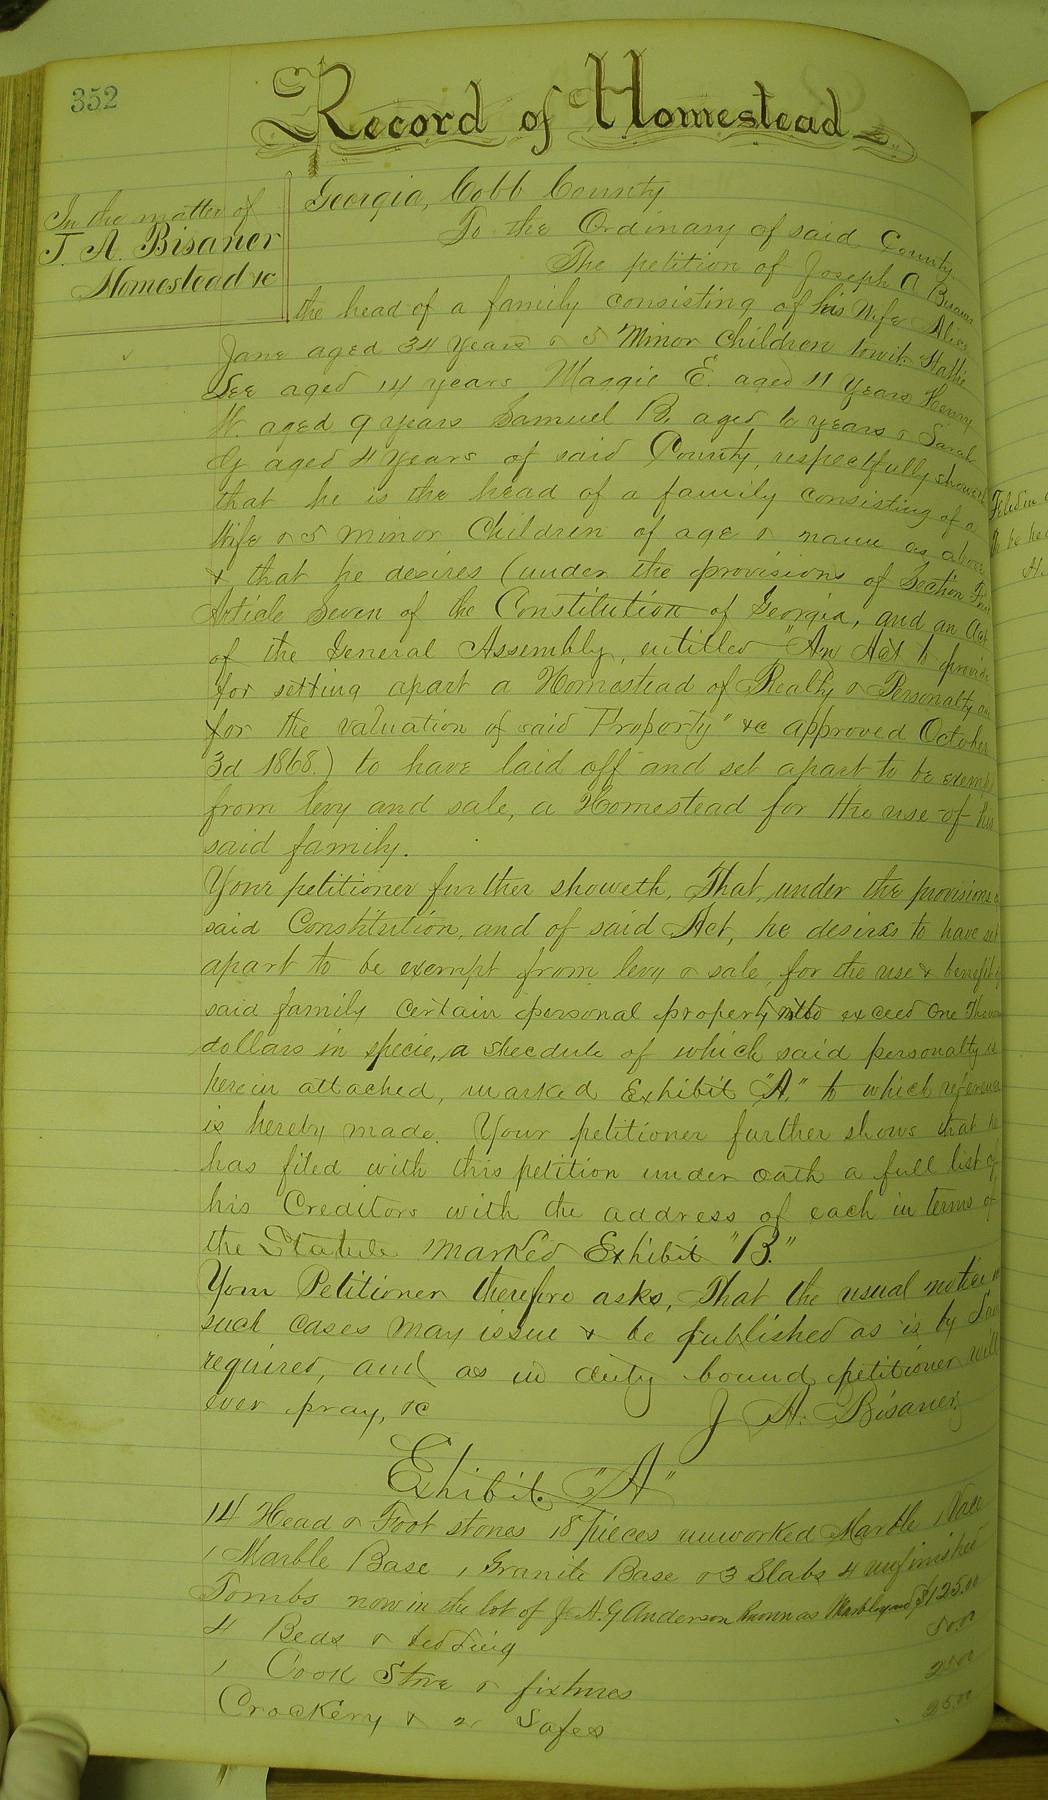 352
Record of Homestead
In the matter of
J. A. Bisaner
Homestead &c
Georgia, Cobb County
To the Ordinary of said County.
The petition of Joseph A Bisaner
the head of a family consisting of his Wife Alice
Jane aged 34 years & 5 Minor Children towit. Hattie
Lee aged 14 years Margie E. aged 11 years Henry
W. aged 9 years Samuel B. aged 6 years & Sarah
G aged 4 years of said County, respectfully showeth
that he is the head of a family consisting of a
Wife & 5 minor Children of age & name as above
& that he desires (under the provisions of Section First
Article Seven of the Constitution of Georgia, and an Act
of the General Assembly, entitled "An Act to provide
for setting apart a Homestead of Realty & Personalty and
for the valuation of said Property" &c approved October
3d 1868.) to have laid off and set apart to be exempt
from levy and sale, a Homestead for the use of his
said family.
Your petitioner further showeth, That, under the provisions of
said Constitution, and of said Act, he desires to have set
apart to be exempt from levy & sale, for the use & benefit of
said family certain personal property not to exceed One Thousand
dollars in specie, a Shecdule of which said personalty is
herein attached, marked Exhibit "A." to which reference
is hereby made. Your petitioner further shows that he
has filed with this petition under oath a full list of
his Creditors with the address of each in terms of
the Statute marked Exhibit "B."
Your Petitioner therefore asks, That the usual notice in
such cases may issue & be published as is by Law
required, and as in duty bound petitioner will
ever pray, &c
J. A. Bisaner
Exhibit "A"
14 Head & Foot stones 18 pieces unworked Marble 1 Vace
1 Marble Base 1 Granite Base & 3 Slabs 4 unfinished
Tombs now in the lot of J. A. G Anderson known as Marbleyard $125.00
4 Beds & bedding 50.00
1 Cook Stove & fixtures 25.00
Crockery & 2 Safes 25.00
Filed in
To be hea